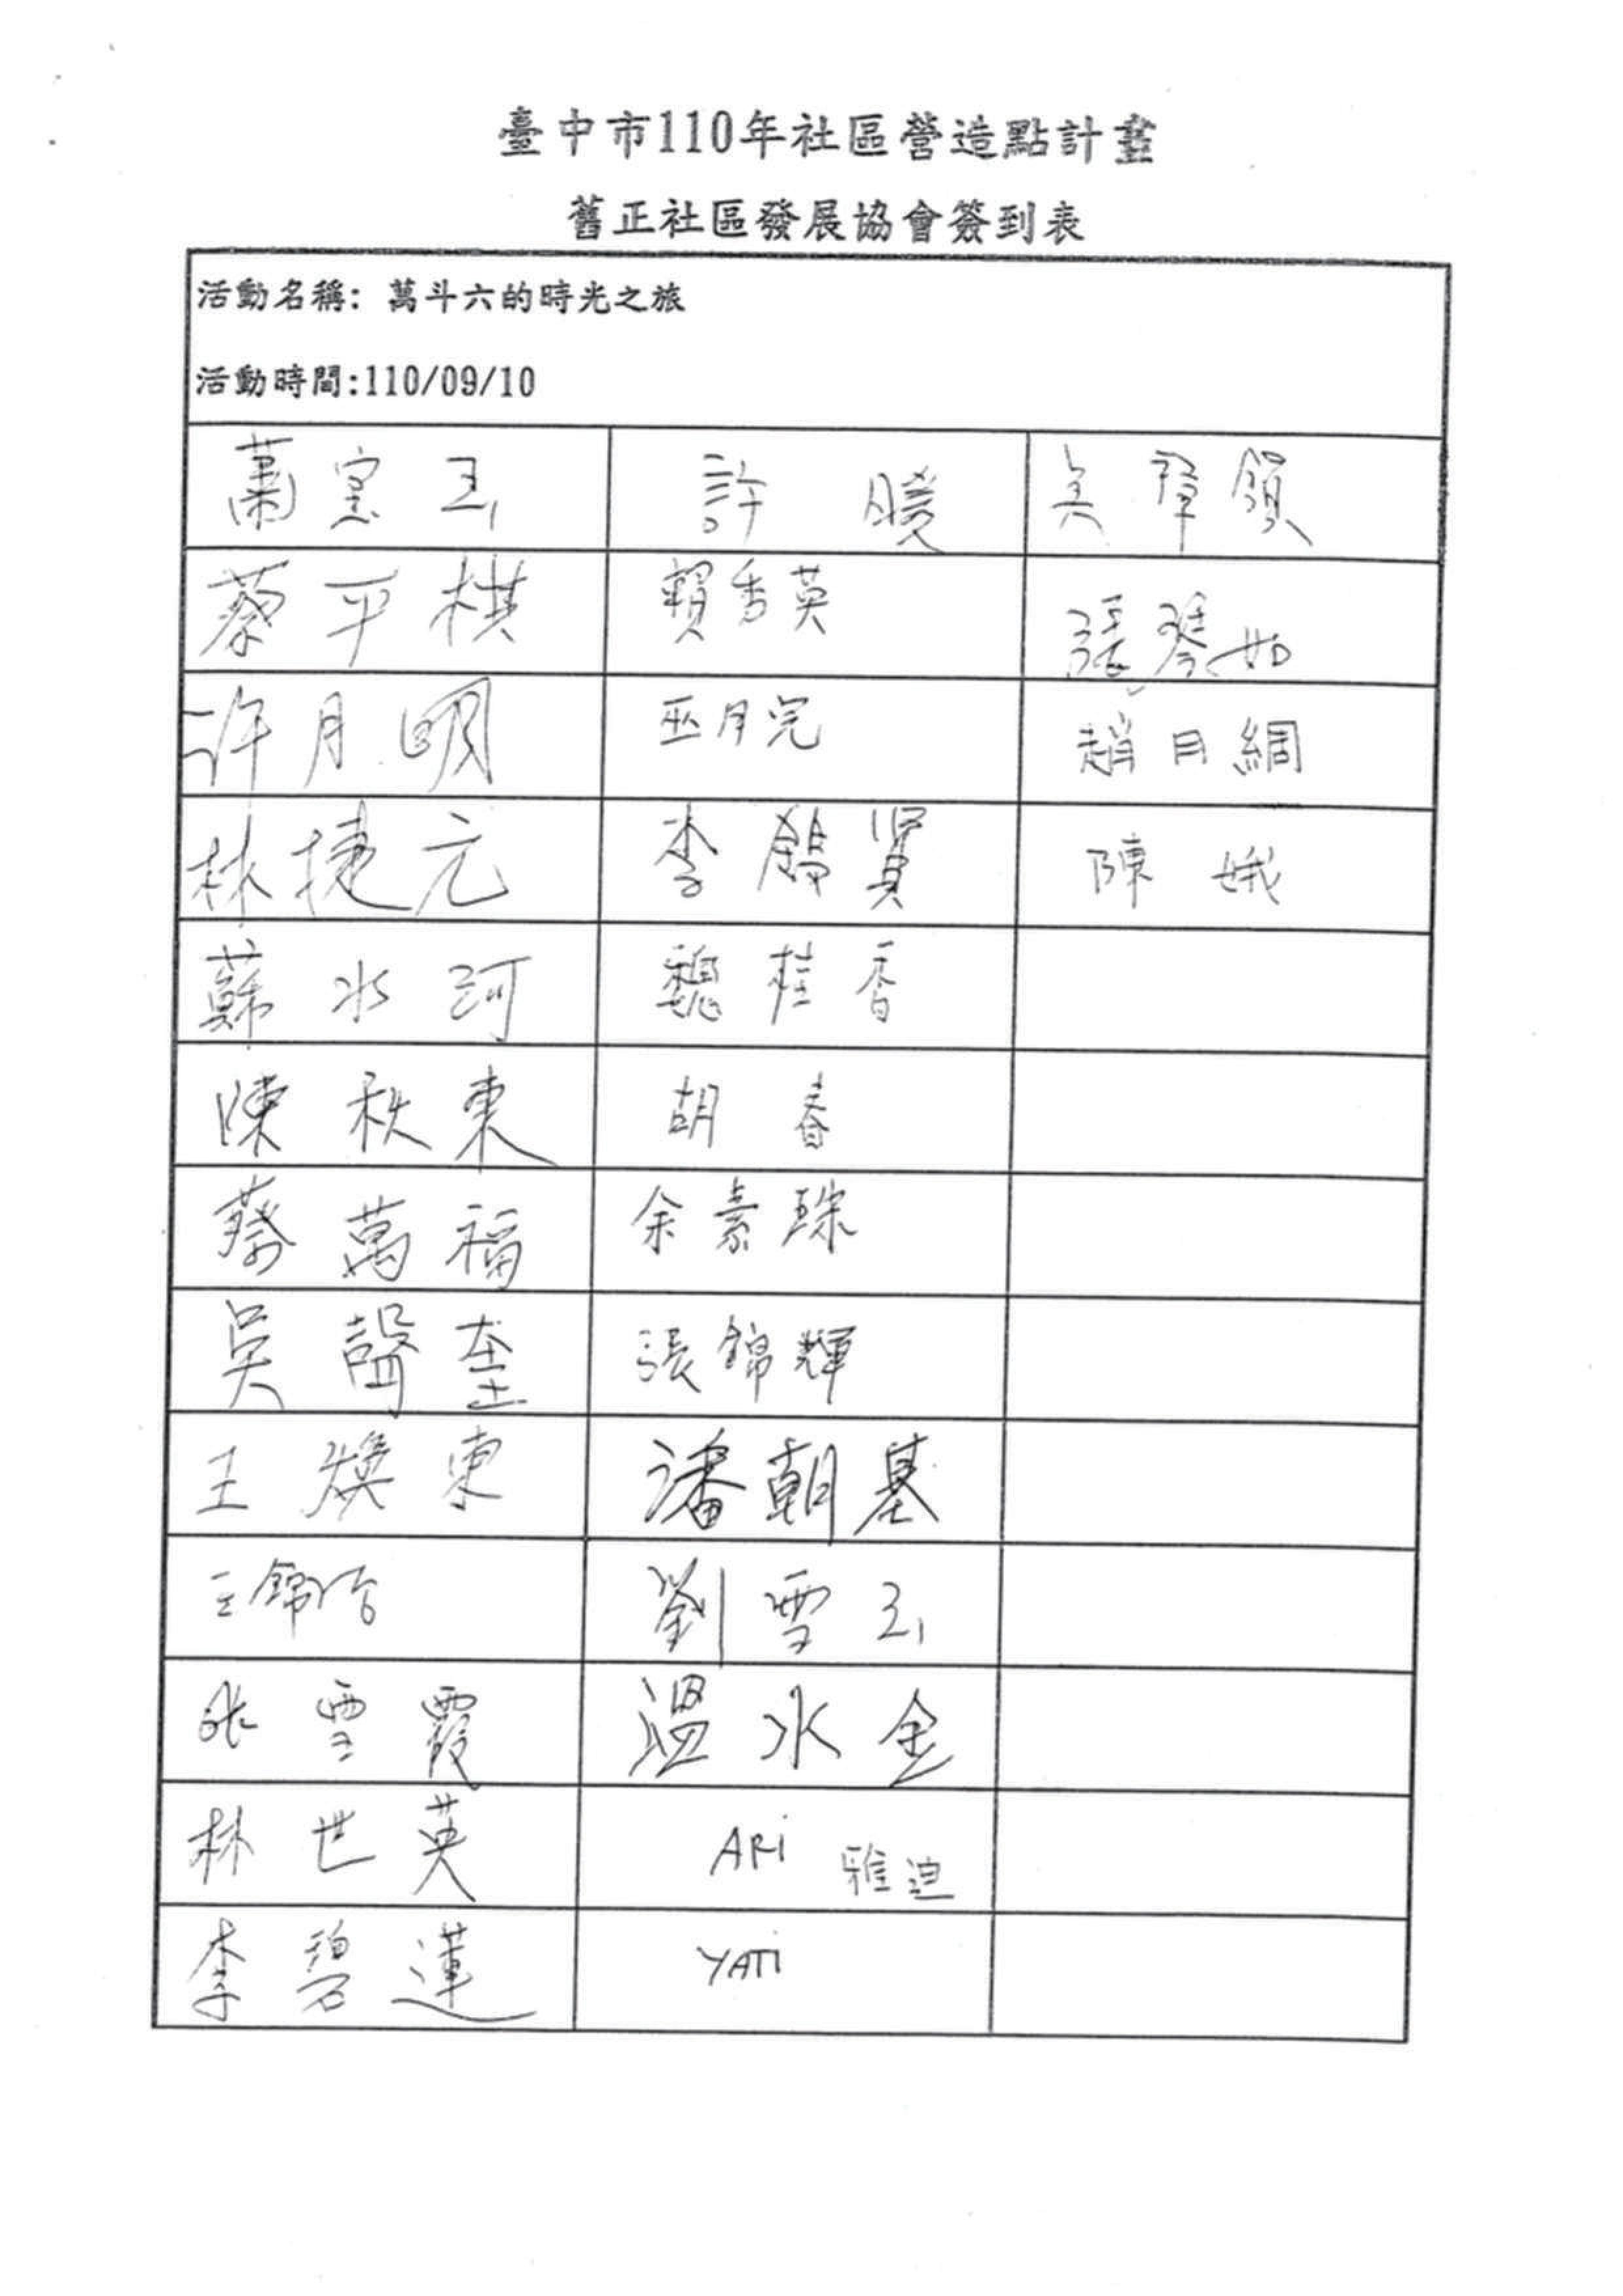 臺中市110年社區營造點計畫
舊正社區發展協會簽到表
活動名稱: 萬斗六的時光之旅
活動時間:110/09/10
蕭窓玉 許曉 吳
蔡平棋 賴秀英 張琴如
許月明 巫月完 趙月綢
林捷元 李錦賢 陳娥
蘇水河 魏桂香
陳秋東 胡春
蔡萬福 余素琮
吳聲奎 張錦輝
王煥東 潘朝基
王錦治 劉雪玉
張雪霞 溫水金
林世英 ARi 雅迪
李碧蓮 YATi